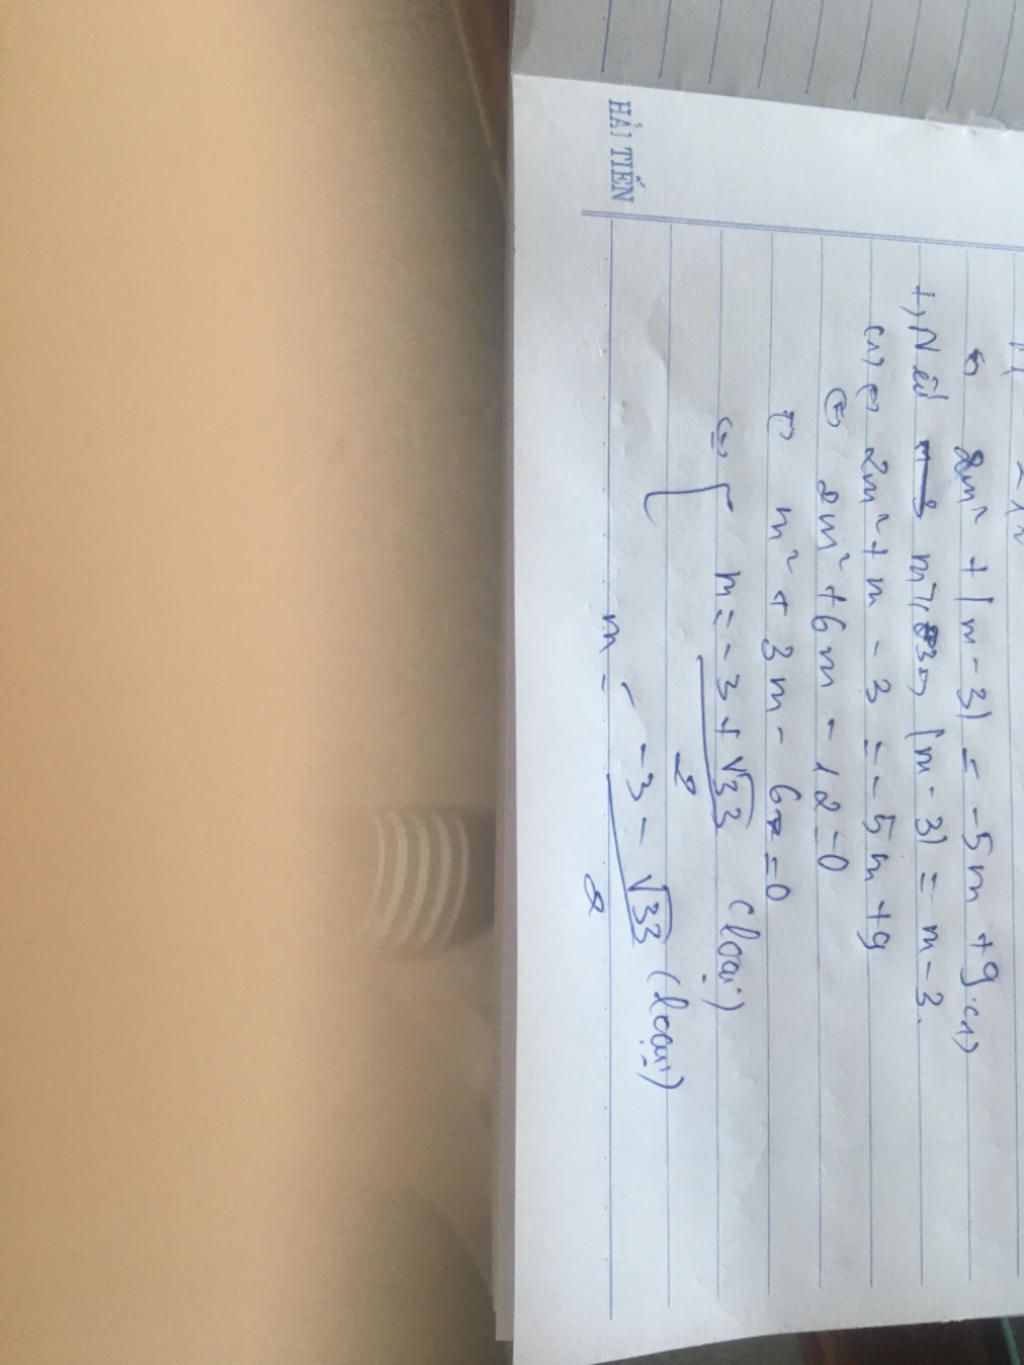 HẢI TIẾN
2m² + |m - 3| = -5m + 9 (1)
+, Nếu m ≥ 3 => |m - 3| = m - 3.
(1) <=> 2m² + m - 3 = -5m + 9
<=> 2m² + 6m - 12 = 0
<=> m² + 3m - 6 = 0
<=> [ m = -3 + √33 / 2 (loại)
m = -3 - √33 / 2 (loại)